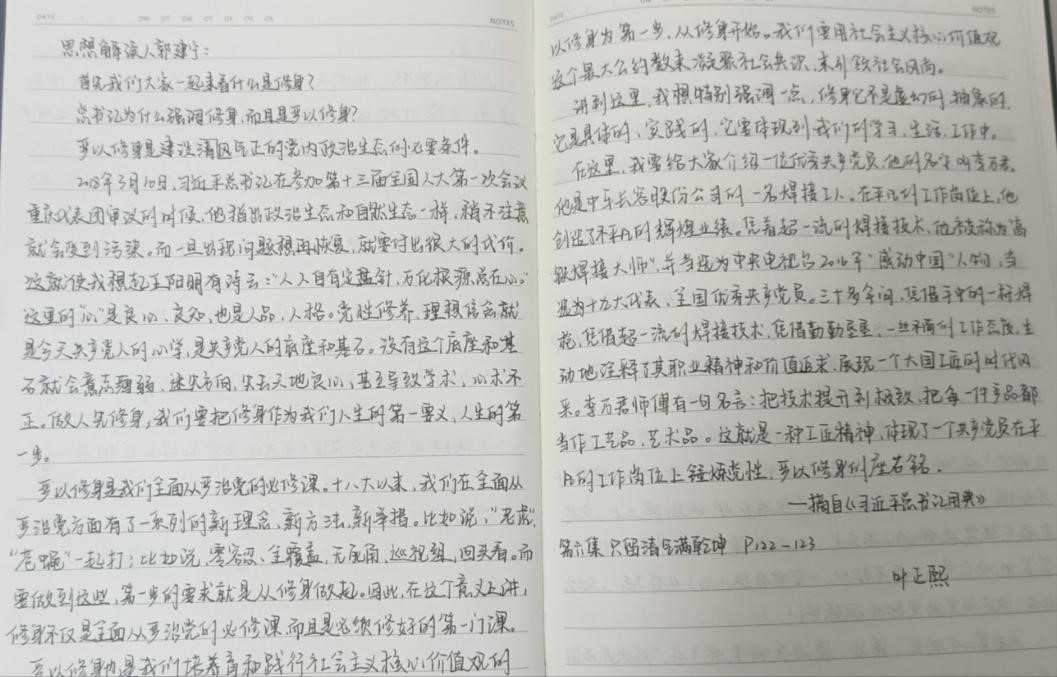 DATE
NOTES
思想解读人郭建宁：
首先我们大家一起来看什么是修身？
总书记为什么强调修身，而且是严以修身？
严以修身是建设清风气正的党内政治生态的必要条件。
2018年3月10日，习近平总书记在参加第十三届全国人大第一次会议
重庆代表团审议的时候，他指出政治生态和自然生态一样，稍不注意
就会受到污染。而一旦出现问题想再恢复，就要付出很大的代价。
这就使我想起王阳明有诗云：“人人自有定盘针，万化根源总在心。”
这里的“心”是良心、良知，也是人品、人格。党性修养、理想信念就
是今天共产党人的心学，是共产党人的底座和基石。没有这个底座和基
石就会意志薄弱，迷失方向，失去天地良心，甚至导致学术、心术不
正。做人先修身，我们要把修身作为我们人生的第一要义，人生的第
一步。
严以修身是我们全面从严治党的必修课。十八大以来，我们在全面从
严治党方面有了一系列的新理念、新方法、新举措。比如说，“老虎”、
“苍蝇”一起打；比如说，零容忍、全覆盖、无死角、巡视组、回头看。而
要做到这些，第一步的要求就是从修身做起。因此，在这个意义上讲，
修身不仅是全面从严治党的必修课，而且是必须修好的第一门课。
严以修身也是我们培养育和践行社会主义核心价值观的
DATE
NOTES
以修身为第一步，从修身开始。我们要用社会主义核心价值观
这个最大公约数来凝聚社会共识，来引领社会风尚。
讲到这里，我想特别强调一点，修身它不是虚幻的、抽象的，
它是具体的、实践的，它要体现到我们的学习、生活、工作中。
在这里，我要给大家介绍一位优秀共产党员，他的名字叫李万君。
他是中车长客股份公司的一名焊接工人。在平凡的工作岗位上，他
创造了不平凡的辉煌业绩。凭着超一流的焊接技术，他被称为“高
铁焊接大师”，并当选为中央电视台2016年“感动中国”人物，当
选为十九大代表、全国优秀共产党员。三十多年间，凭借手中的一杆焊
枪，凭借超一流的焊接技术，凭借勤勤恳恳、一丝不苟的工作态度，生
动地诠释了其职业精神和价值追求，展现一个大国工匠的时代风
采。李万君师傅有一句名言：把技术提升到极致，把每一件产品都
当作工艺品、艺术品。这就是一种工匠精神，体现了一个共产党员在平
凡的工作岗位上锤炼党性，严以修身的座右铭。
——摘自《习近平总书记用典》
第六集 只留清气满乾坤 P122-123
叶正熙